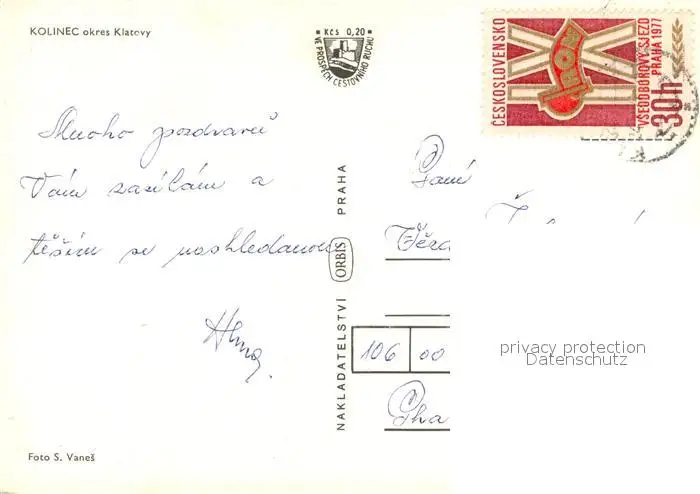 KOLINEC okres Klatovy
Kčs 0,20
VE PROSPĚCH CESTOVNÍHO RUCHU
ČESKOSLOVENSKO
ROH
VŠEODBOROVÝ SJEZD
PRAHA 1977
30h
Mnoho pozdravů
Vám zasílám a
těším se nashledanou
NAKLADATELSTVÍ ORBIS PRAHA
Paní
Věra
106 00
Pra
privacy protection
Datenschutz
Foto S. Vaneš